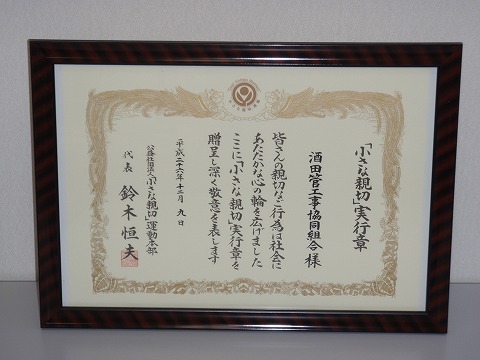 「小さな親切」実行章
酒田管工事協同組合 様
皆さんの親切なご行為は社会に
あたたかな心の輪を広げました
ここに「小さな親切」実行章を
贈呈し深く敬意を表します
平成二十六年十二月 九日
公益社団法人「小さな親切」運動本部
代表 鈴木恒夫